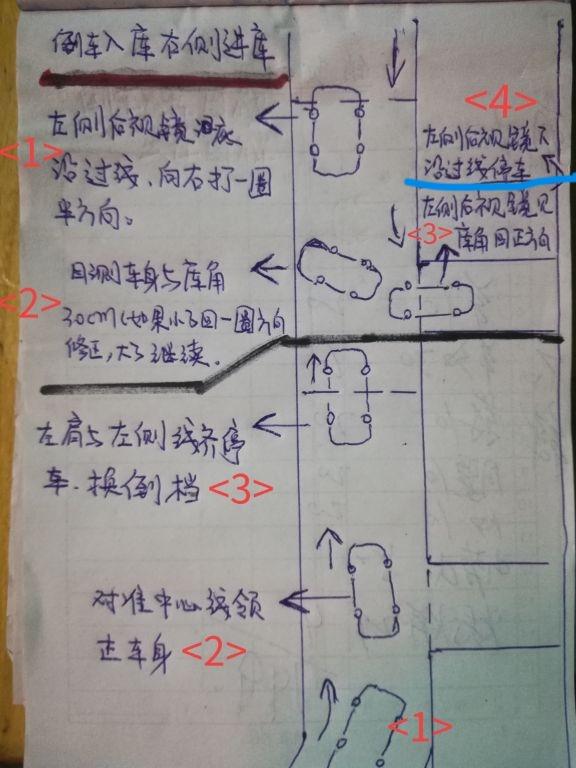 倒车入库右侧进库
左侧后视镜泪底
<1>
沿过线、向右打一圈
半方向。
<4>
左侧后视镜下
沿过线停车
左侧后视镜见
<3>
库角回正方向
目测车身与库角
<2>
30cm(如果小了回一圈方向
修正,大了继续.
左肩与左侧线齐停
车.换倒档
<3>
对准中心线领
正车身
<2>
<1>